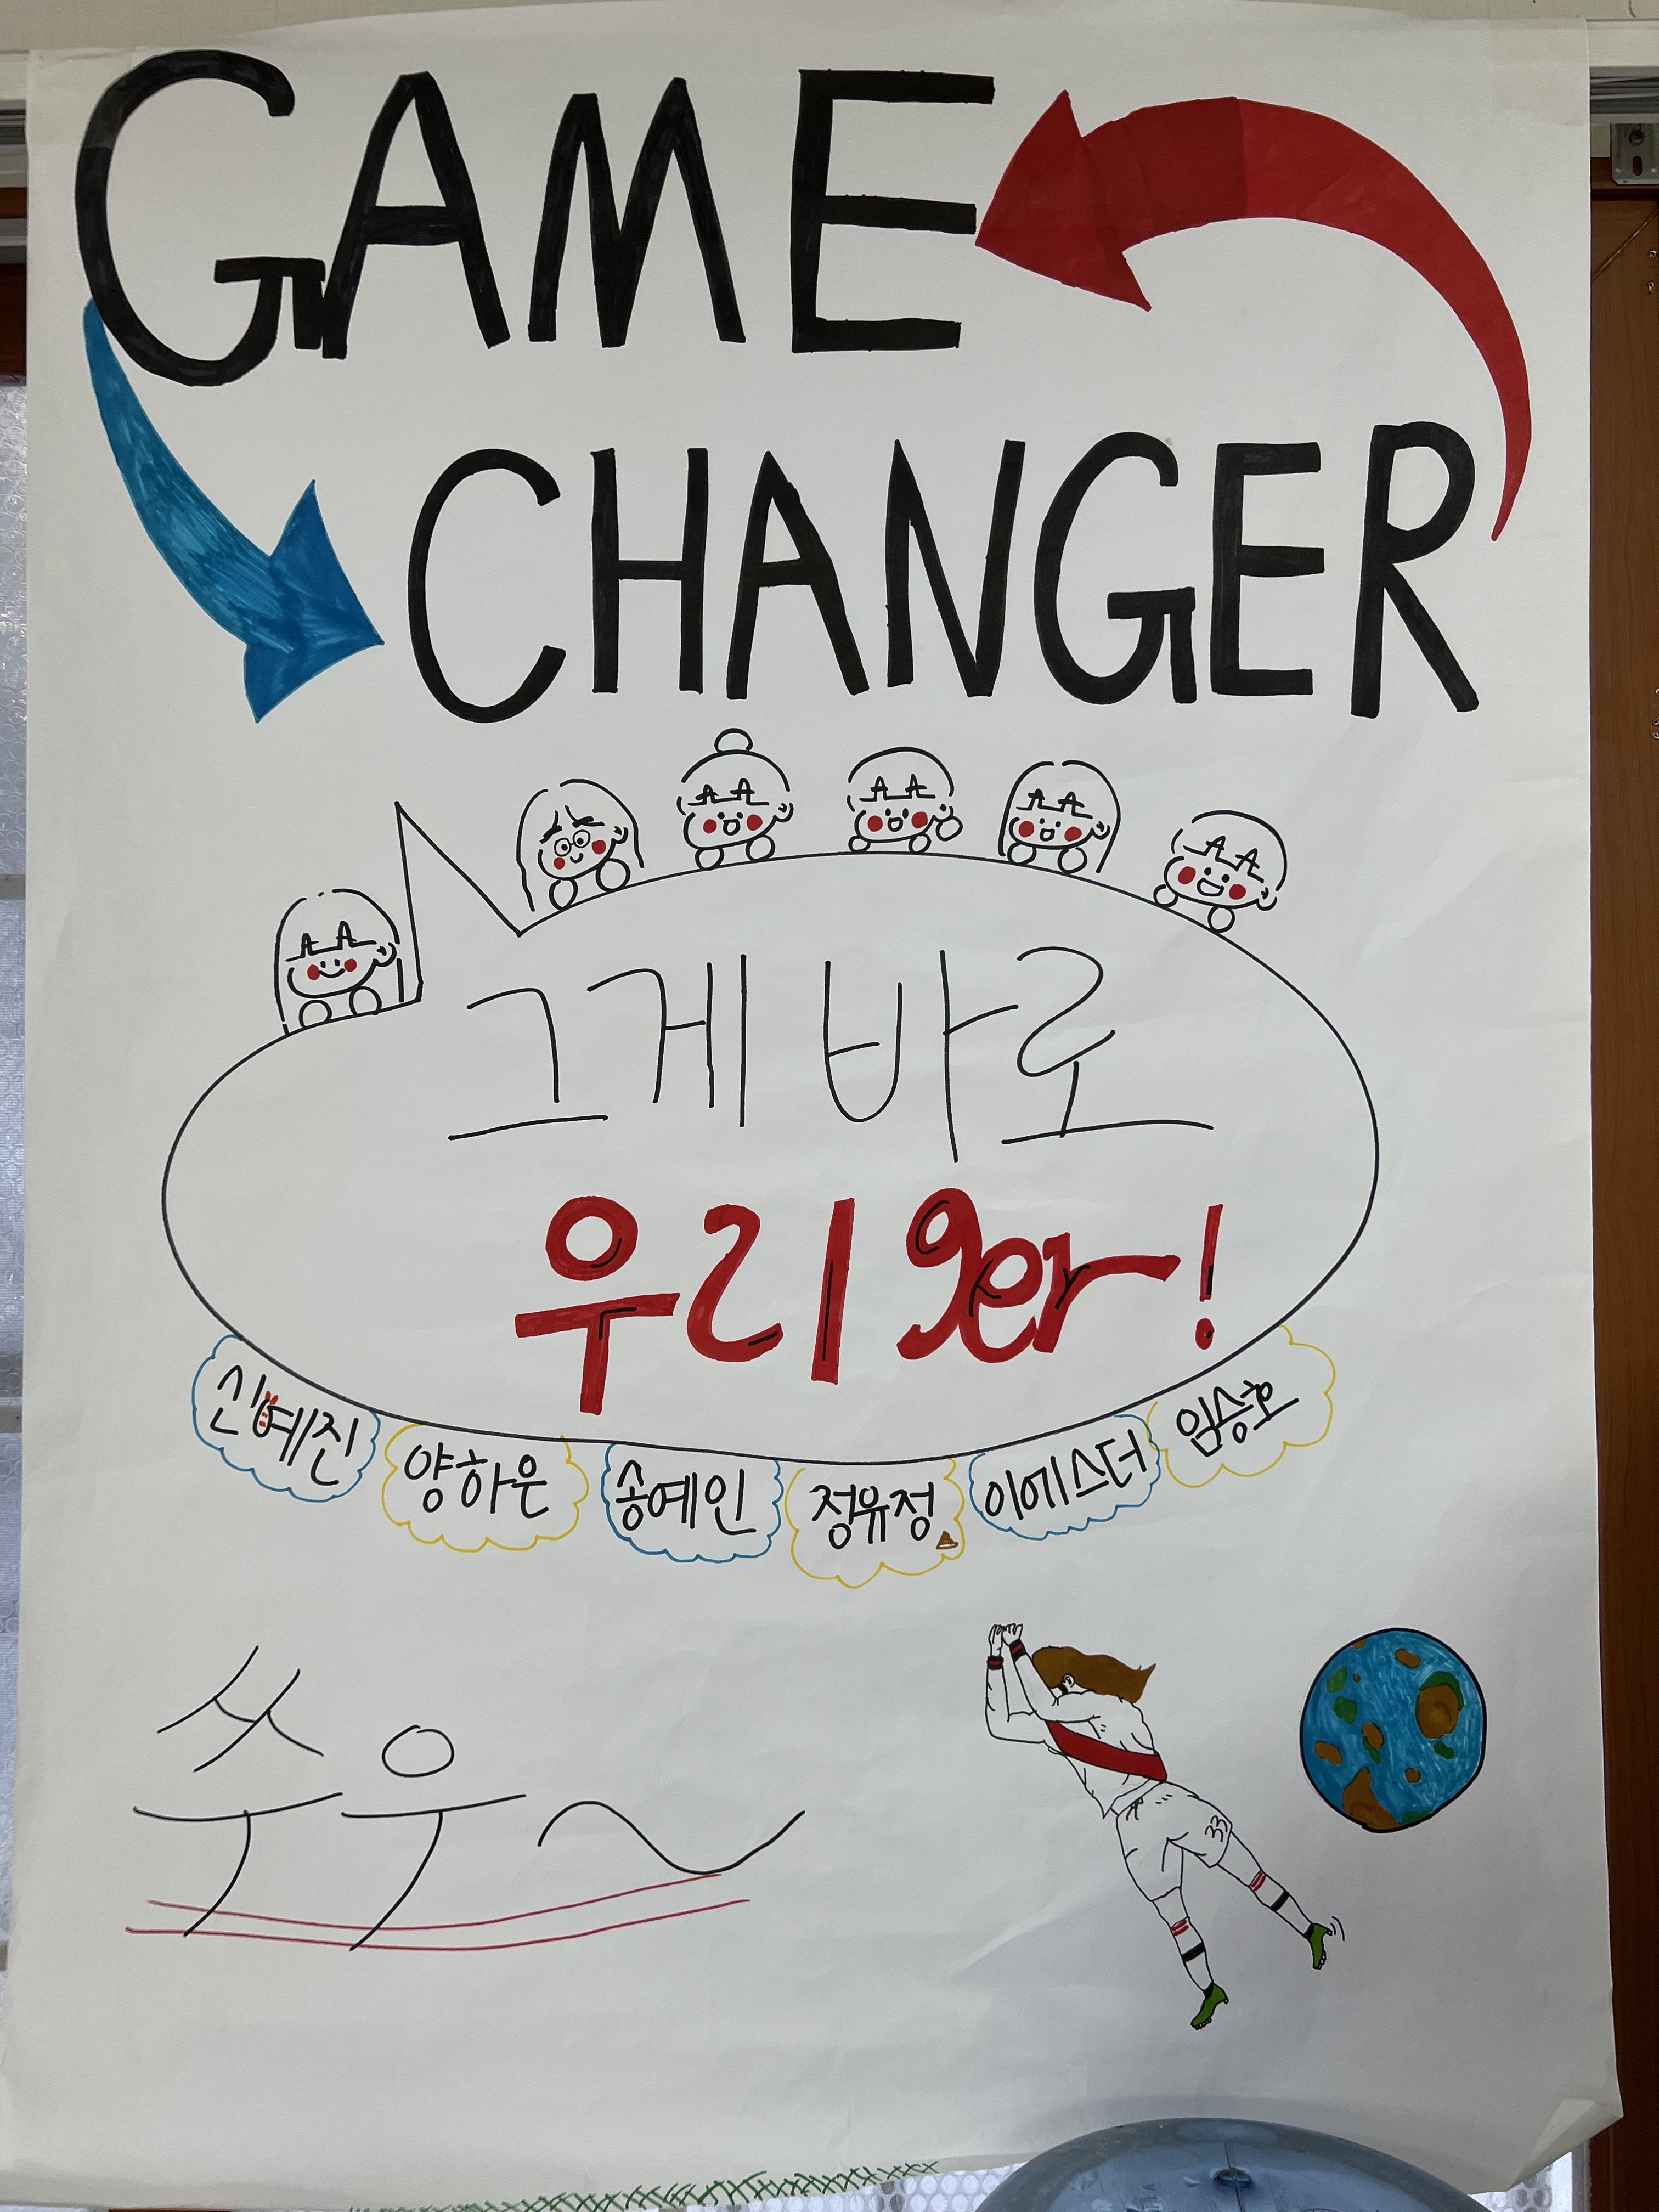 GAME
CHANGER
그게 바로
우리ger!
신예진 양하은 송예인 정유정 이에스더 임승호
쑤우~